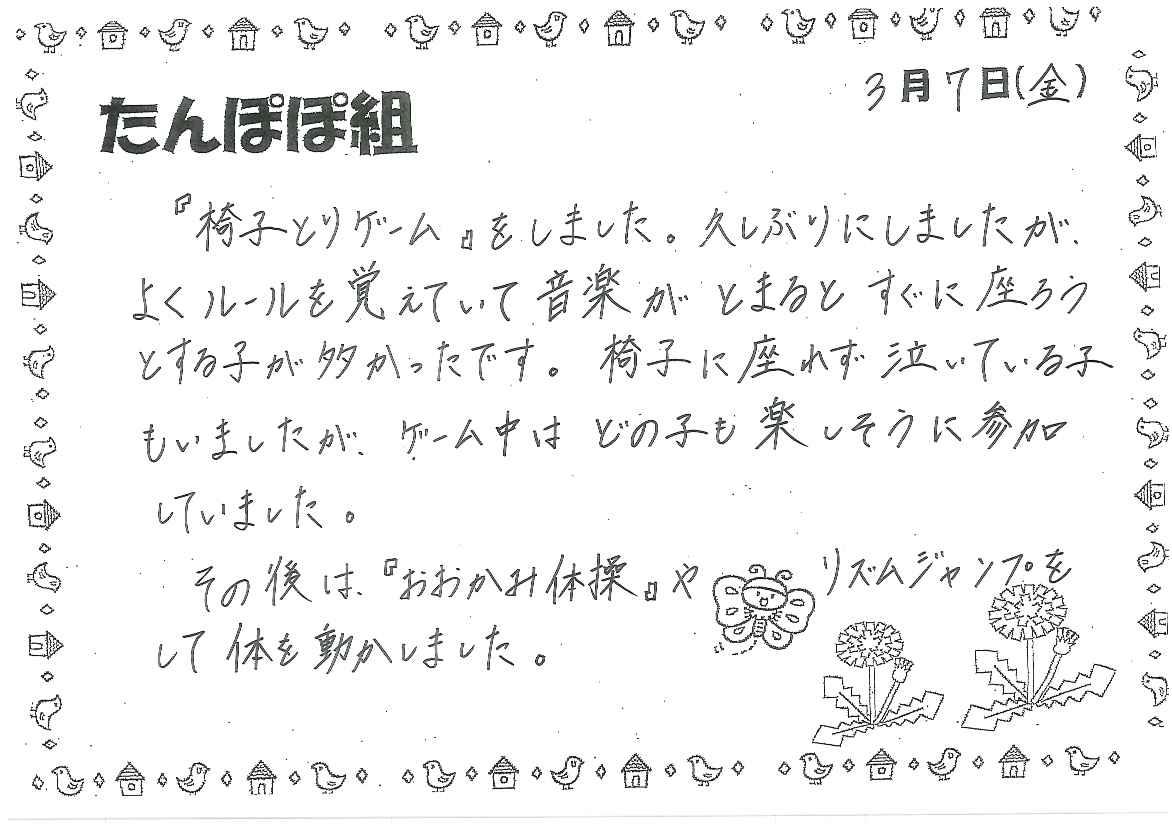 3月7日(金)
たんぽぽ組
『椅子とりゲーム』をしました。久しぶりにしましたが、
よくルールを覚えていて音楽がとまるとすぐに座ろう
とする子が多かったです。椅子に座れず泣いている子
もいましたが、ゲーム中はどの子も楽しそうに参加
していました。
その後は、『おおかみ体操』やリズムジャンプを
して体を動かしました。